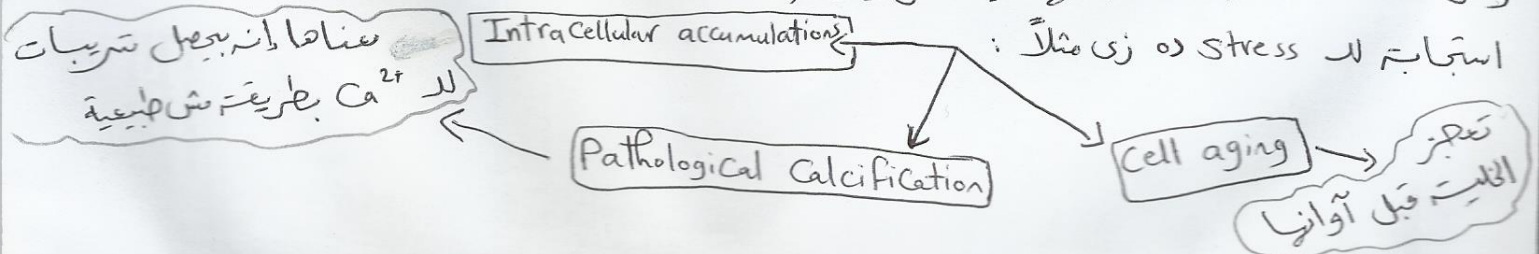 استجابة لل stress ده زى مثلاً :
Intracellular accumulations
Pathological Calcification
معناها إنه بيحصل ترسبات
لل Ca²⁺ بطريقة مش طبيعية
Cell aging
تعجز
الخلية قبل آوانها